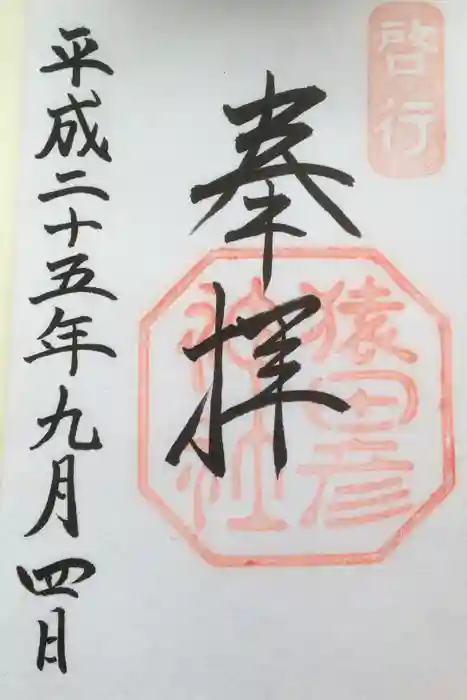 啓行
奉拝
猿田彦
神社
平成二十五年九月四日